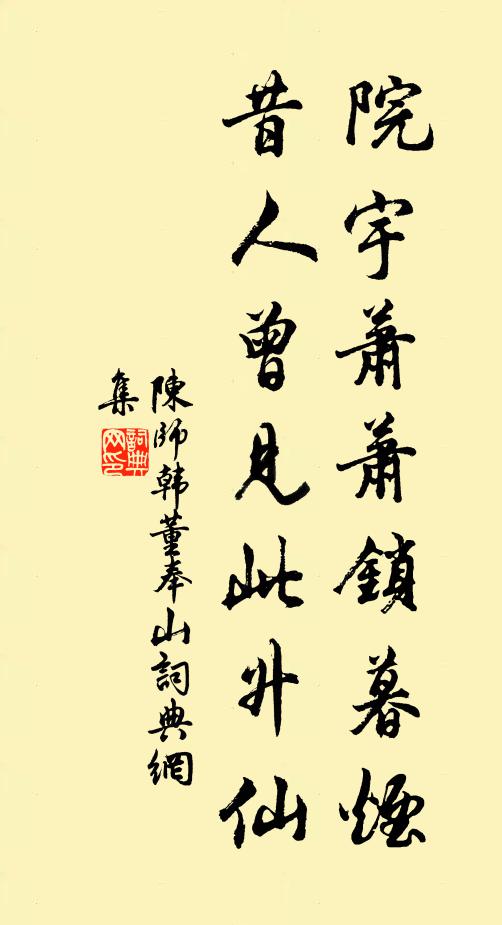 院宇蕭蕭鎖暮煙
昔人曾見此升仙
陳師韓董奉山詞典網
集
詞典
网印